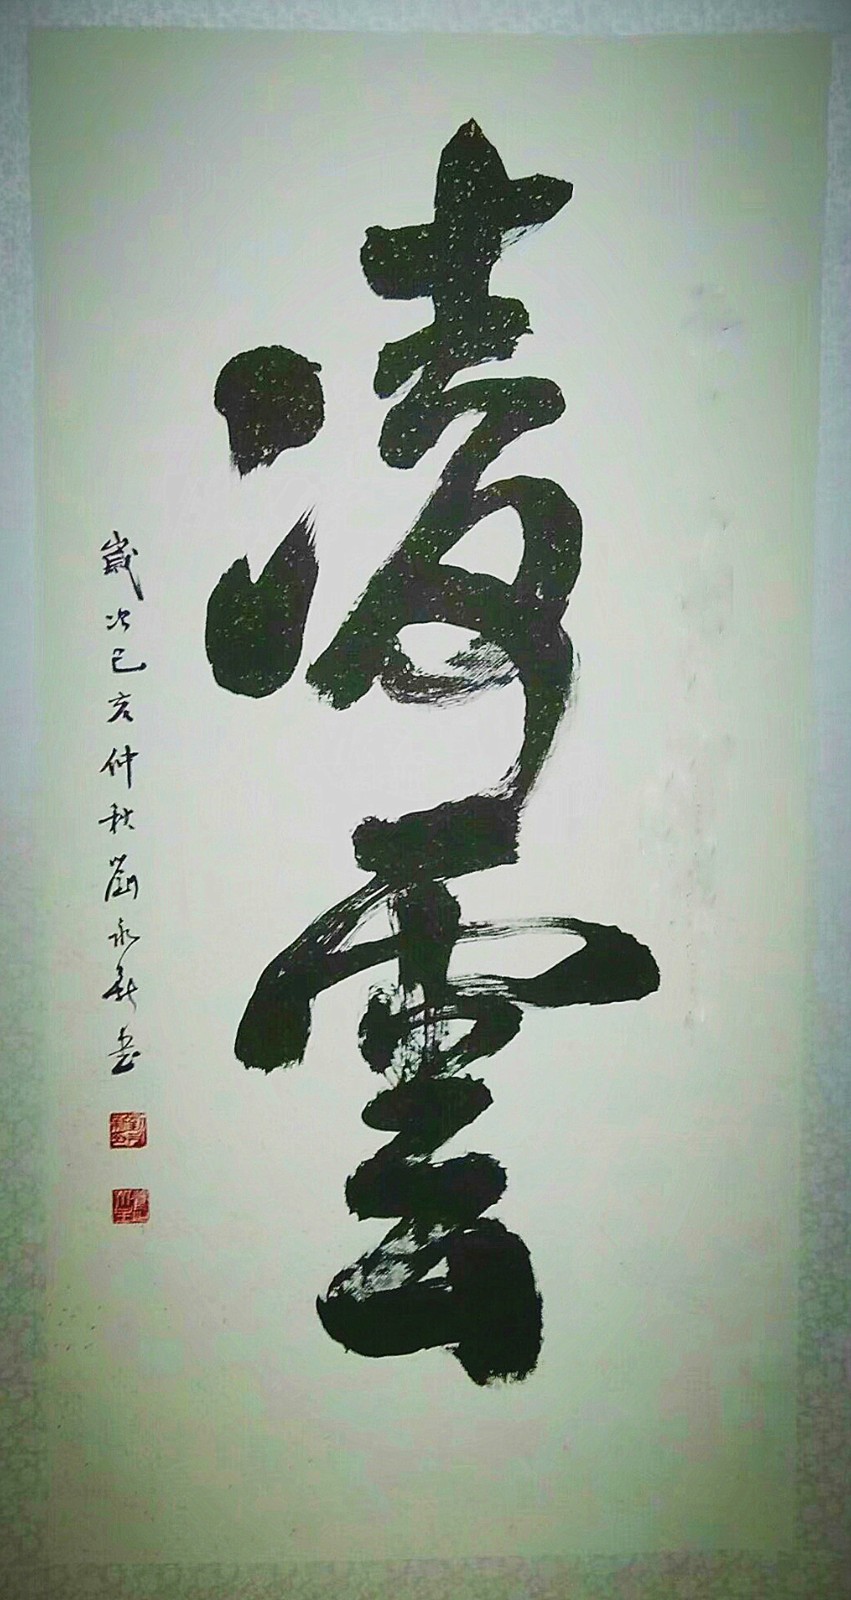 凌雲
歲次己亥仲秋劉永新書